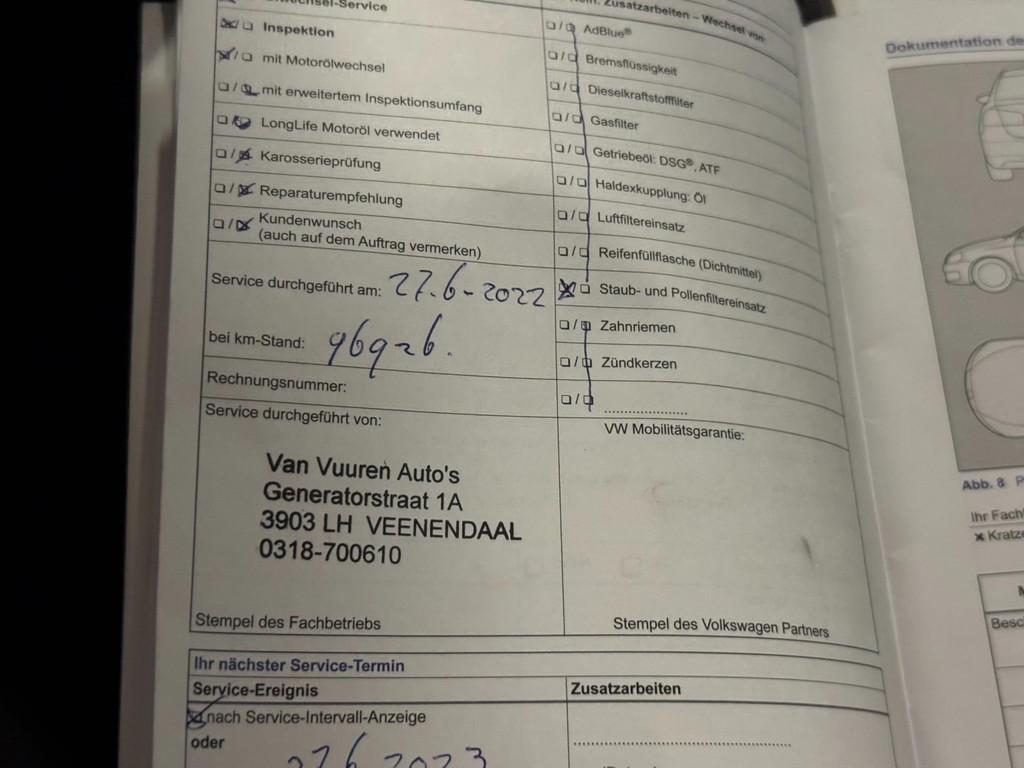 -Service
Inspektion
mit Motorölwechsel
mit erweitertem Inspektionsumfang
LongLife Motoröl verwendet
Karosserieprüfung
Reparaturempfehlung
Kundenwunsch
(auch auf dem Auftrag vermerken)
Service durchgeführt am: 27.6-2022
bei km-Stand:
Rechnungsnummer:
Service durchgeführt von:
Van Vuuren Auto's
Generatorstraat 1A
3903 LH VEENENDAAL
0318-700610
Stempel des Fachbetriebs
Zusatzarbeiten – Wechsel von:
AdBlue®
Bremsflüssigkeit
Dieselkraftstofffilter
Gasfilter
Getriebeöl: DSG®, ATF
Haldexkupplung: Öl
Luftfiltereinsatz
Reifenfüllflasche (Dichtmittel)
Staub- und Pollenfiltereinsatz
Zahnriemen
Zündkerzen
VW Mobilitätsgarantie:
Stempel des Volkswagen Partners
Ihr nächster Service-Termin
Service-Ereignis
Zusatzarbeiten
nach Service-Intervall-Anzeige
oder
27.6 2023
Dokumentation de
Abb. 8 P
Ihr Fach
× Kratze
Besc